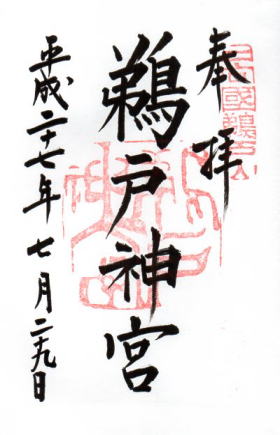 奉拝
鵜戸神宮
平成二十七年七月二十九日